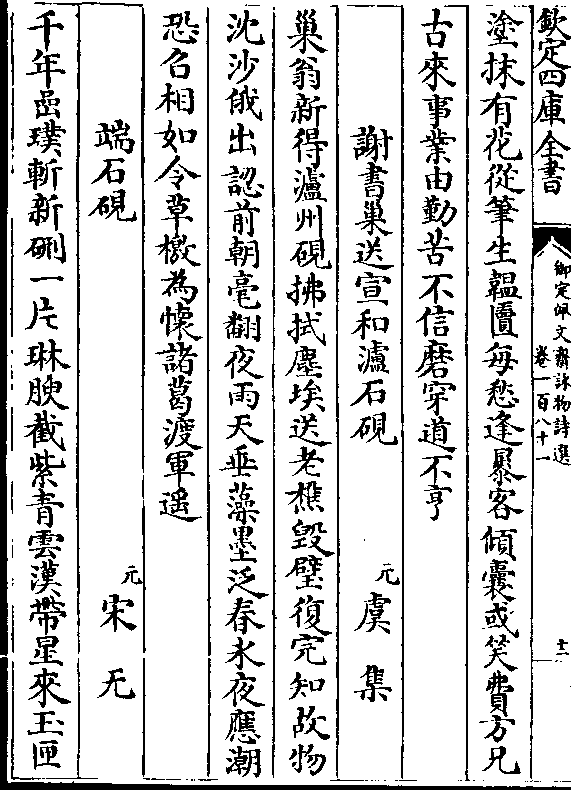 欽定四庫全書
御定佩文齋詠物詩選
卷一百八十一
十二
塗抹有花從筆生韞匵每愁逢暴客傾囊或笑費方兄
古來事業由勤苦不信磨穿道不亨
謝書巢送宣和瀘石硯
元
虞集
巢翁新得瀘州硯拂拭塵埃送老樵毀璧復完知故物
沈沙俄出認前朝毫翻夜雨天垂藻墨泛春氷夜應潮
恐召相如令草檄為懷諸葛渡軍遥
端石硯
元
宋无
千年嵒璞斬新硎一片琳腴截紫青雲漢帶星來玉匣